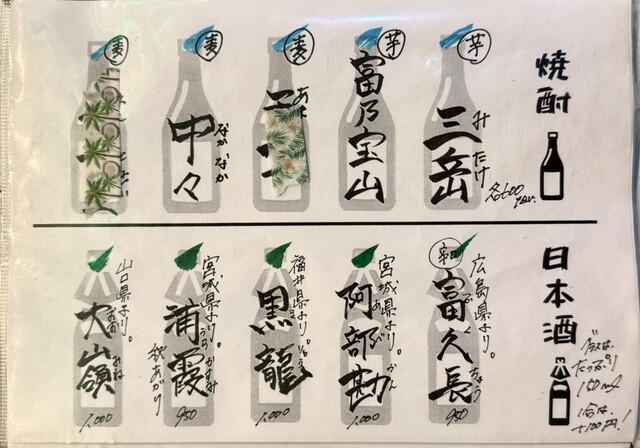 焼酎
芋
三岳
みたけ
各600
芋
富乃宝山
麦
麦
中々
なかなか
麦
日本酒
グラスは
たっぷり
150ml
1合は
+100円!
広島県より。
辛口
富久長
ふくちょう
950
宮城県より。
阿部勘
あべかん
1,000
福井県より。
黒龍
こくりゅう
1,000
宮城県より。
浦霞
うらかすみ
秋あがり
950
山口県より。
大山嶺
おおみね
1,000